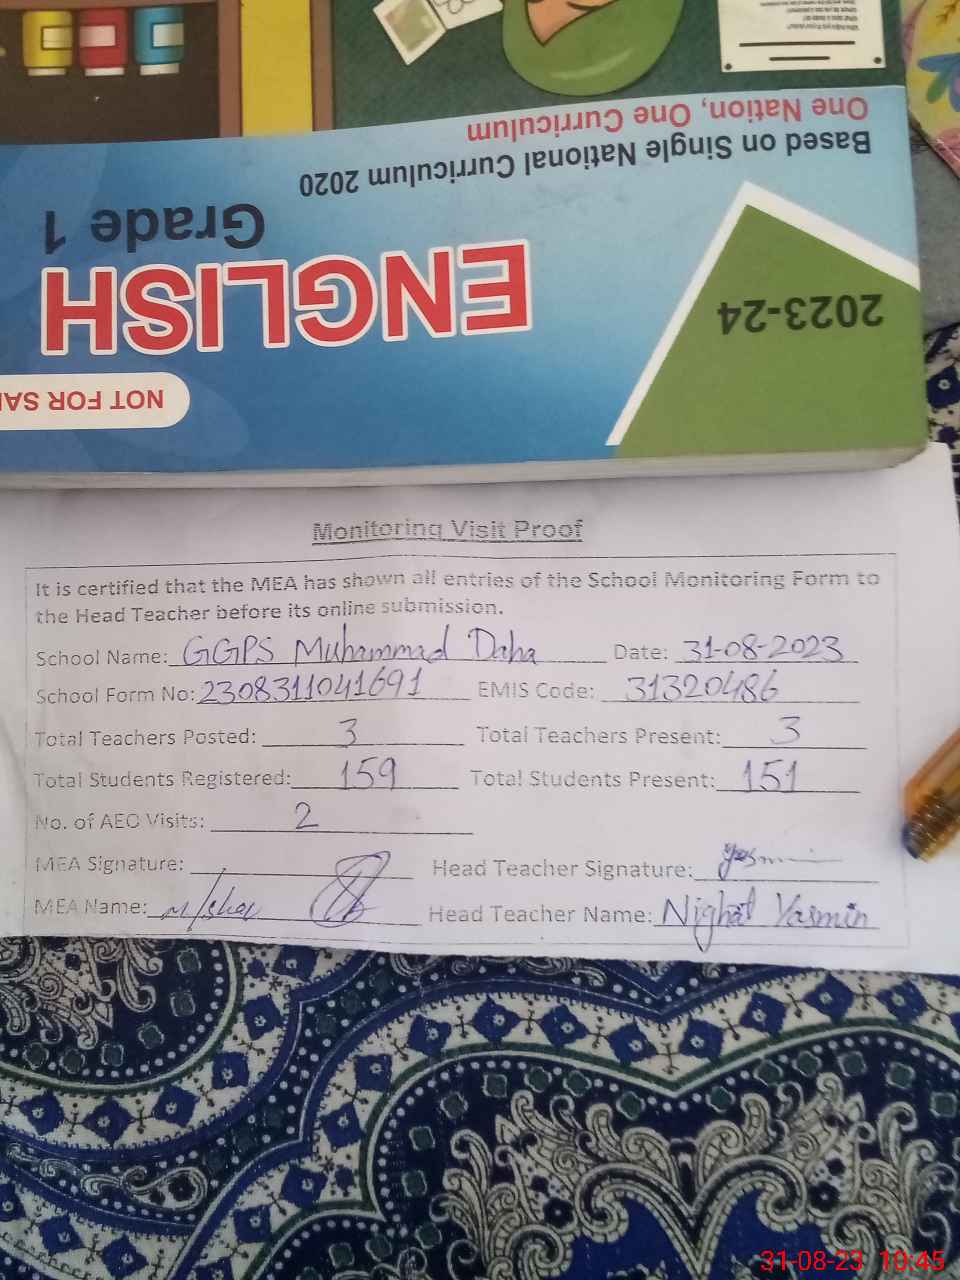 One Nation, One Curriculum
Based on Single National Curriculum 2020
Grade 1
ENGLISH
2023-24
NOT FOR SA
Monitoring Visit Proof
It is certified that the MEA has shown all entries of the School Monitoring Form to
the Head Teacher before its online submission.
School Name: GGPS Muhammad Daha Date: 31-08-2023
School Form No: 2308311041691 EMIS Code: 31320486
Total Teachers Posted: 3 Total Teachers Present: 3
Total Students Registered: 159 Total Students Present: 151
No. of AEO Visits: 2
MEA Signature: Head Teacher Signature: Yasmin
MEA Name: Head Teacher Name: Nighat Yasmin
31-08-23 10:45